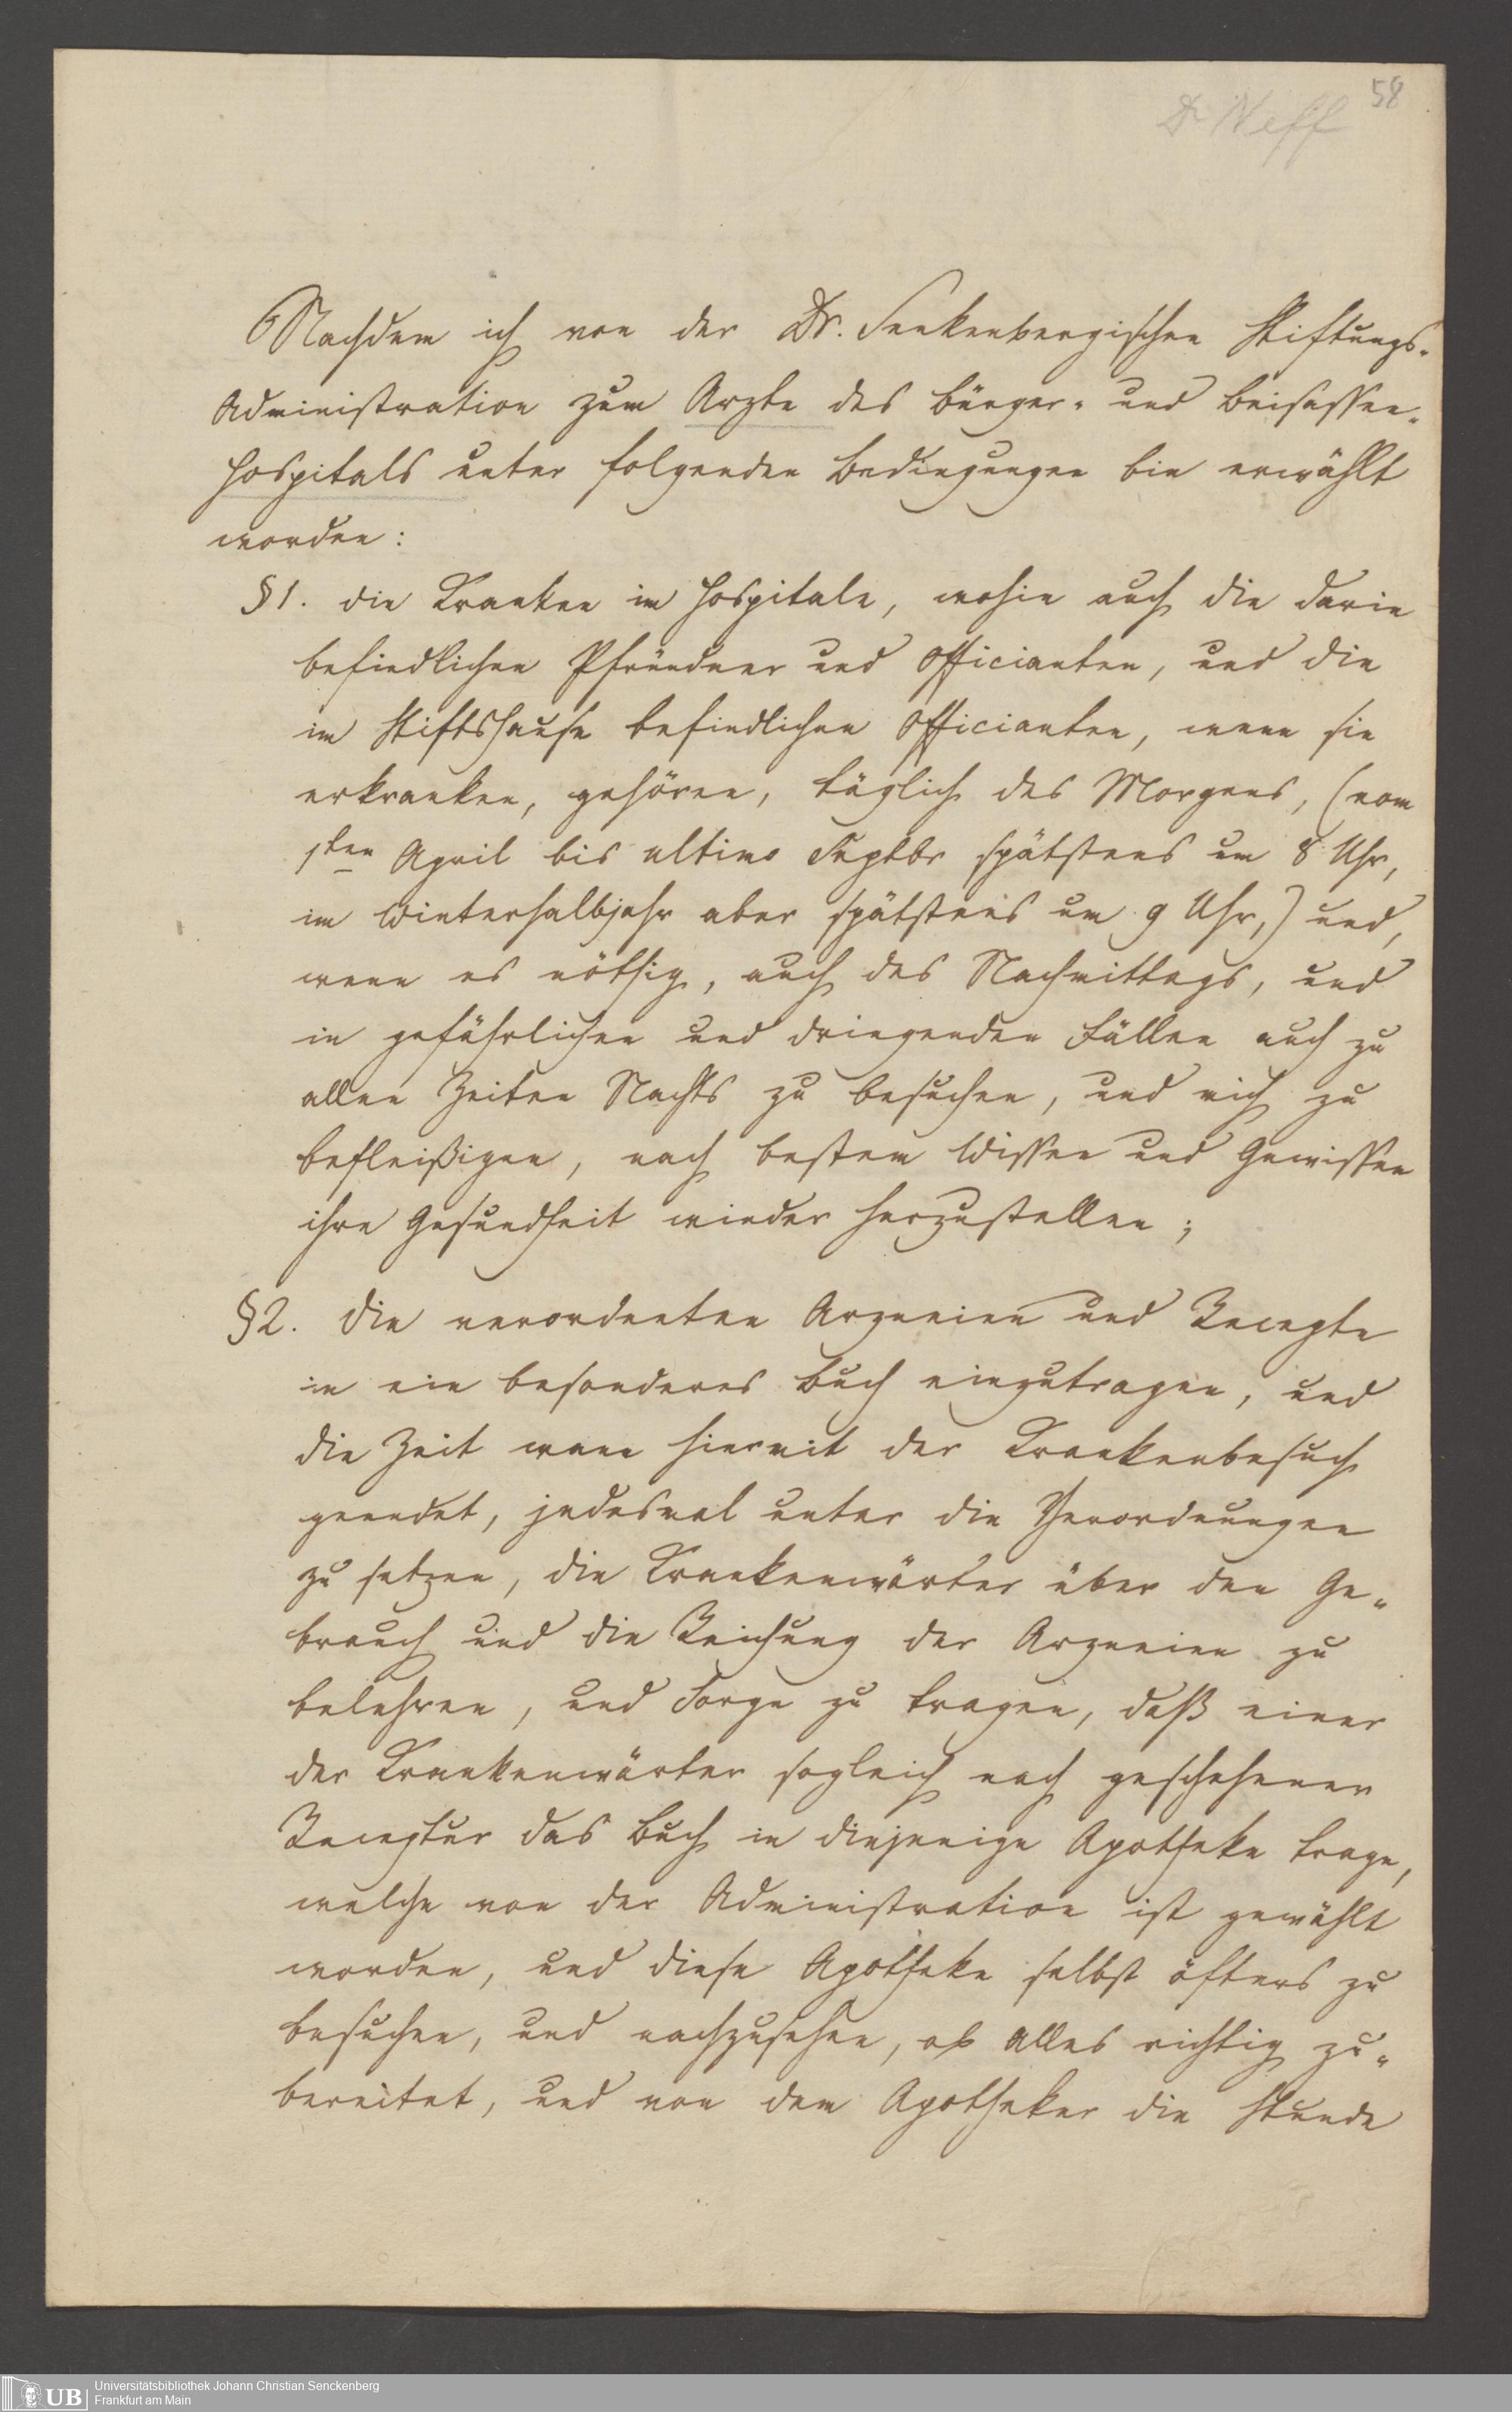 58
Dr Neff
Nachdem ich von der Dr. Senkenbergischen Stiftungs-
Administration zum Arzte des Bürger- und Beisassen-
Hospitals unter folgenden Bedingungen bin erwählt
worden:
§1. die Kranken im Hospitale, wohin auch die darin
befindlichen Pfründner und Officianten, und die
im Stiftshause befindlichen Officianten, wenn sie
erkranken, gehören, täglich des Morgens, (vom
1ten April bis ultimo Septbr spätstens um 8 Uhr,
im Winterhalbjahr aber spätstens um 9 Uhr,) und,
wenn es nöthig, auch des Nachmittags, und
in gefährlichen und dringenden Fällen auch zu
allen Zeiten Nachts zu besuchen, und mich zu
befleißigen, nach bestem Wissen und Gewissen
ihre Gesundheit wieder herzustellen;
§2. die verordneten Arzneien und Recepte
in ein besonderes Buch einzutragen, und
die Zeit wann hiermit der Krankenbesuch
geendet, jedesmal unter die Verordnungen
zu setzen, die Krankenwärter über den Ge-
brauch und die Reichung der Arzneien zu
belehren, und Sorge zu tragen, daß einer
der Krankenwärter sogleich nach geschehener
Receptur das Buch in diejenige Apotheke trage,
welche von der Administration ist gewählt
worden, und diese Apotheke selbst öfters zu
besuchen, und nachzusehen, ob Alles richtig zu-
bereitet, und von dem Apotheker die Stunde
UB
Universitätsbibliothek Johann Christian Senckenberg
Frankfurt am Main